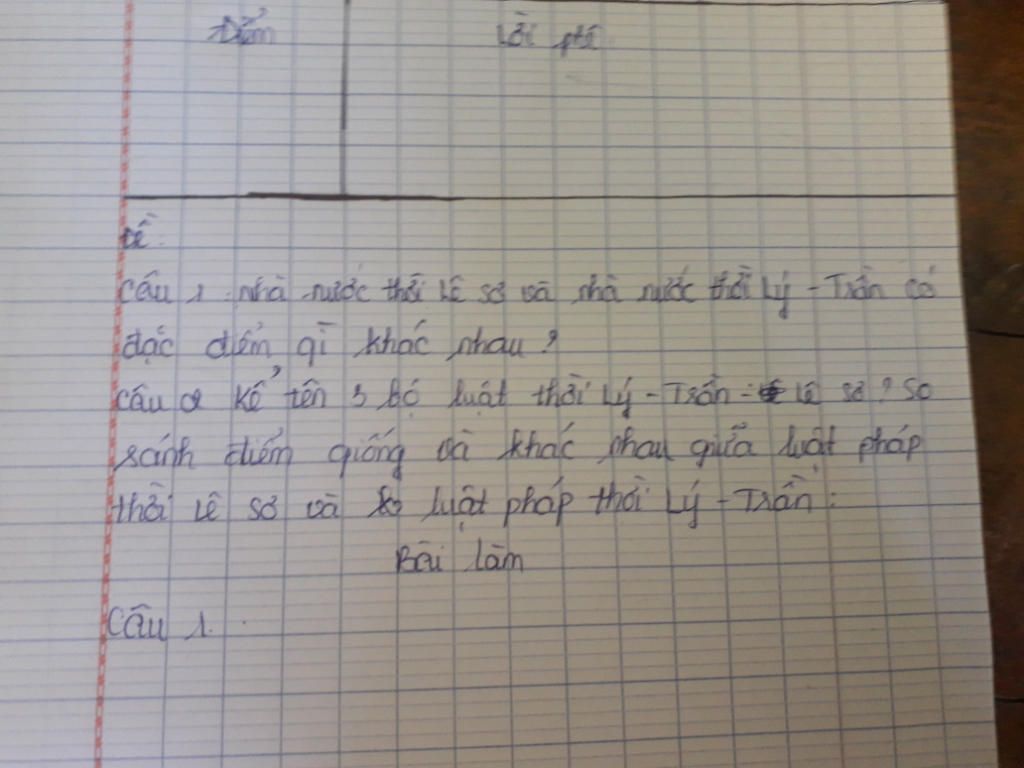 Điểm
Lời phê
Đề:
Câu 1. nhà nước thời Lê sơ và nhà nước thời Lý - Trần có
đặc điểm gì khác nhau?
Câu 2 Kể tên 3 bộ luật thời Lý - Trần - Lê sơ? So
sánh điểm giống và khác nhau giữa luật pháp
thời Lê sơ và luật pháp thời Lý - Trần:
Bài làm
Câu 1.